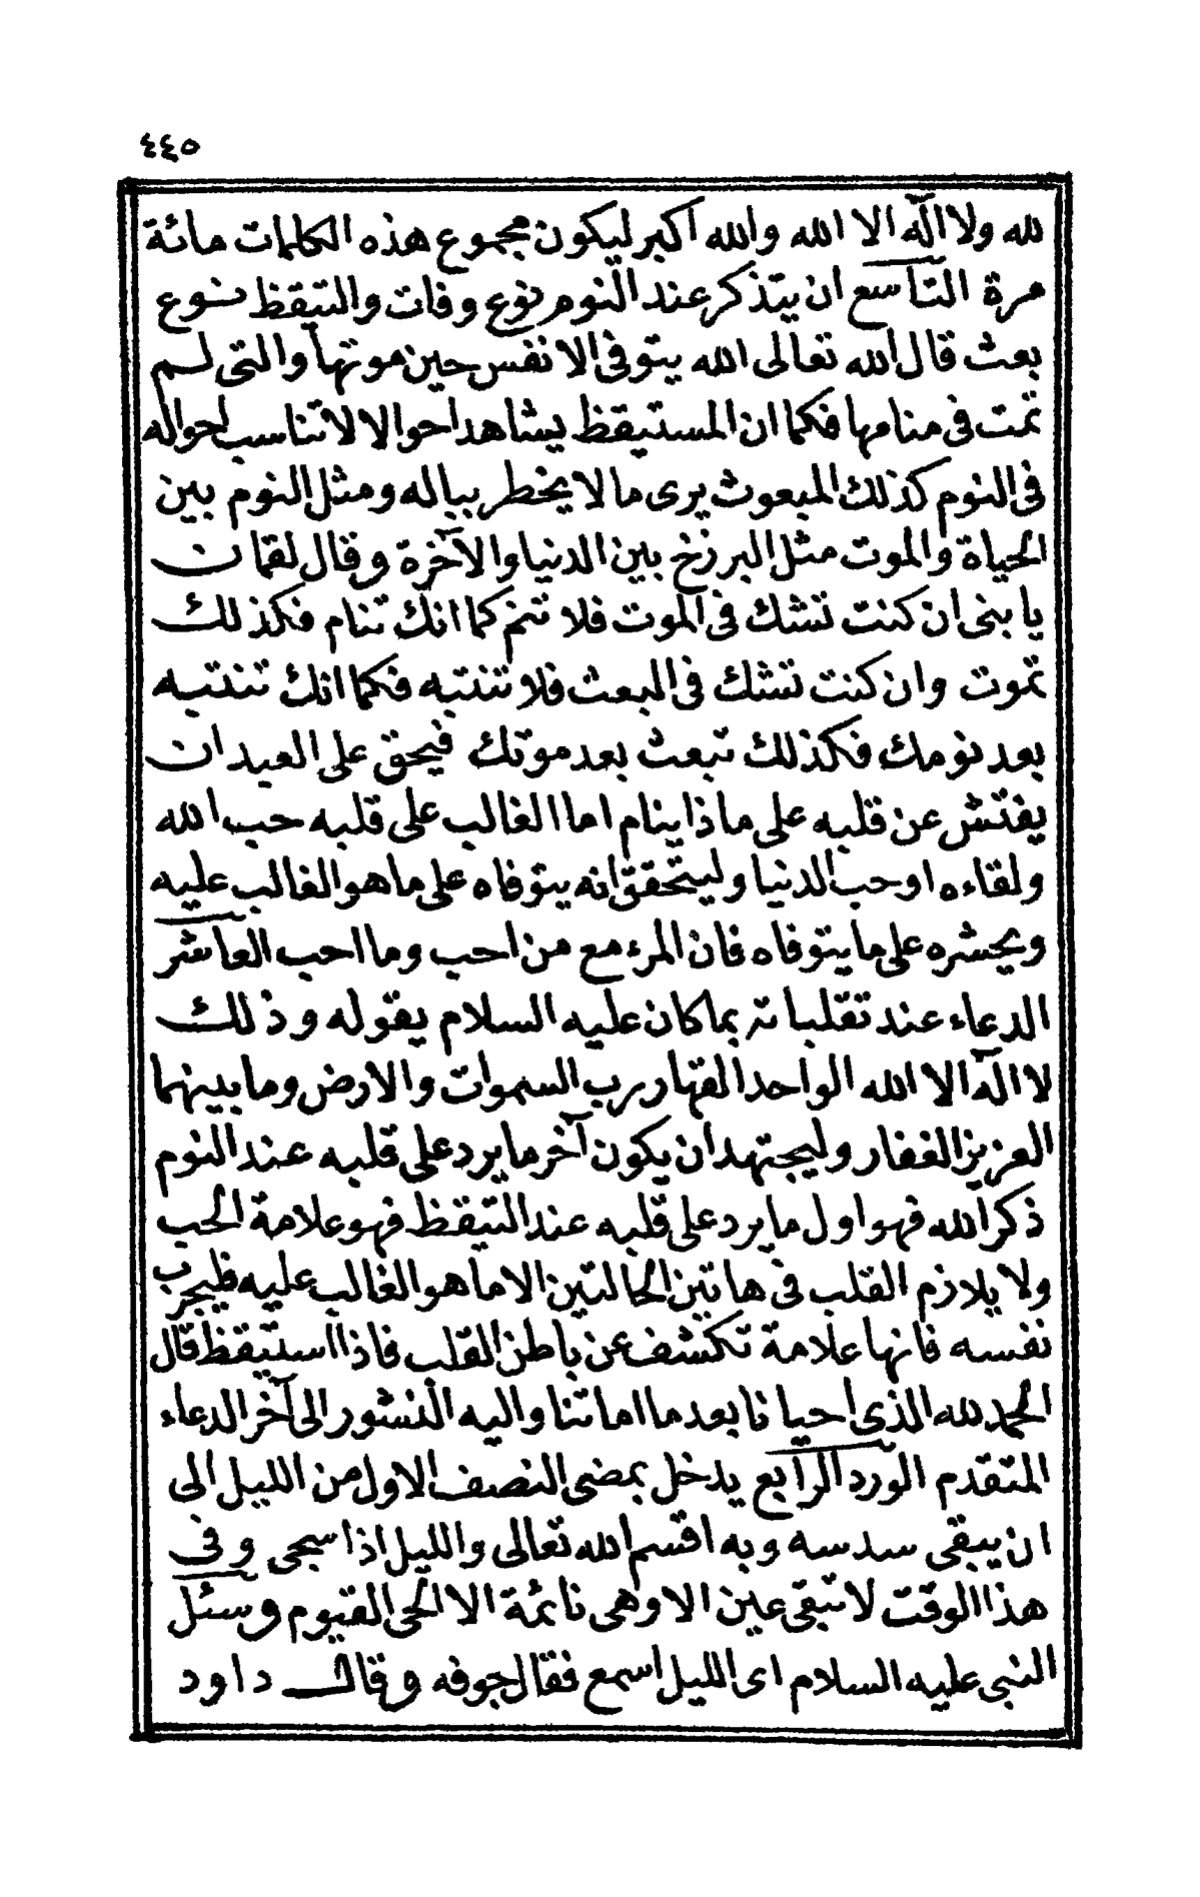 ٤٤٥
لله ولا اله الا الله والله اكبر ليكون مجموع هذه الكلمات مائة
مرة التاسع ان يتذكر عند النوم نوع وفات والتيقظ نوع
بعث قال الله تعالى الله يتوفى الانفس حين موتها والتى لم
تمت فى منامها فكما ان المستيقظ يشاهد احوالا لا تناسب احواله
فى النوم كذلك المبعوث يرى ما لا يخطر بباله ومثل النوم بين
الحياة والموت مثل البرزخ بين الدنيا والآخرة وقال لقمان
يا بنى ان كنت تشك فى الموت فلا تنم كما انك تنام فكذلك
تموت وان كنت تشك فى البعث فلا تنتبه فكما انك تنتبه
بعد نومك فكذلك تبعث بعد موتك فيحق على العبد ان
يفتش عن قلبه على ماذا ينام اما الغالب على قلبه حب الله
ولقاءه او حب الدنيا وليتحقق انه يتوفاه على ما هو الغالب عليه
ويحشره على ما يتوفاه فان المرء مع من احب وما احب العاشر
الدعاء عند تقلباته بما كان عليه السلام يقوله وذلك
لا اله الا الله الواحد القهار رب السموات والارض وما بينهما
العزيز الغفار وليجتهد ان يكون آخر ما يرد على قلبه عند النوم
ذكر الله فهو اول ما يرد على قلبه عند التيقظ فهو علامة الحب
ولا يلازم القلب فى هاتين الحالتين الا ما هو الغالب عليه فليجرب
نفسه فانها علامة تكشف عن باطن القلب فاذا استيقظ قال
الحمد لله الذى احيانا بعد ما اماتنا واليه النشور الى آخر الدعاء
المتقدم الورد الرابع يدخل بمضى النصف الاول من الليل الى
ان يبقى سدسه وبه اقسم الله تعالى والليل اذا سجى وفى
هذا الوقت لا تبقى عين الا وهى نائمة الا الحى القيوم وسئل
النبى عليه السلام اى الليل اسمع فقال جوفه وقال داود